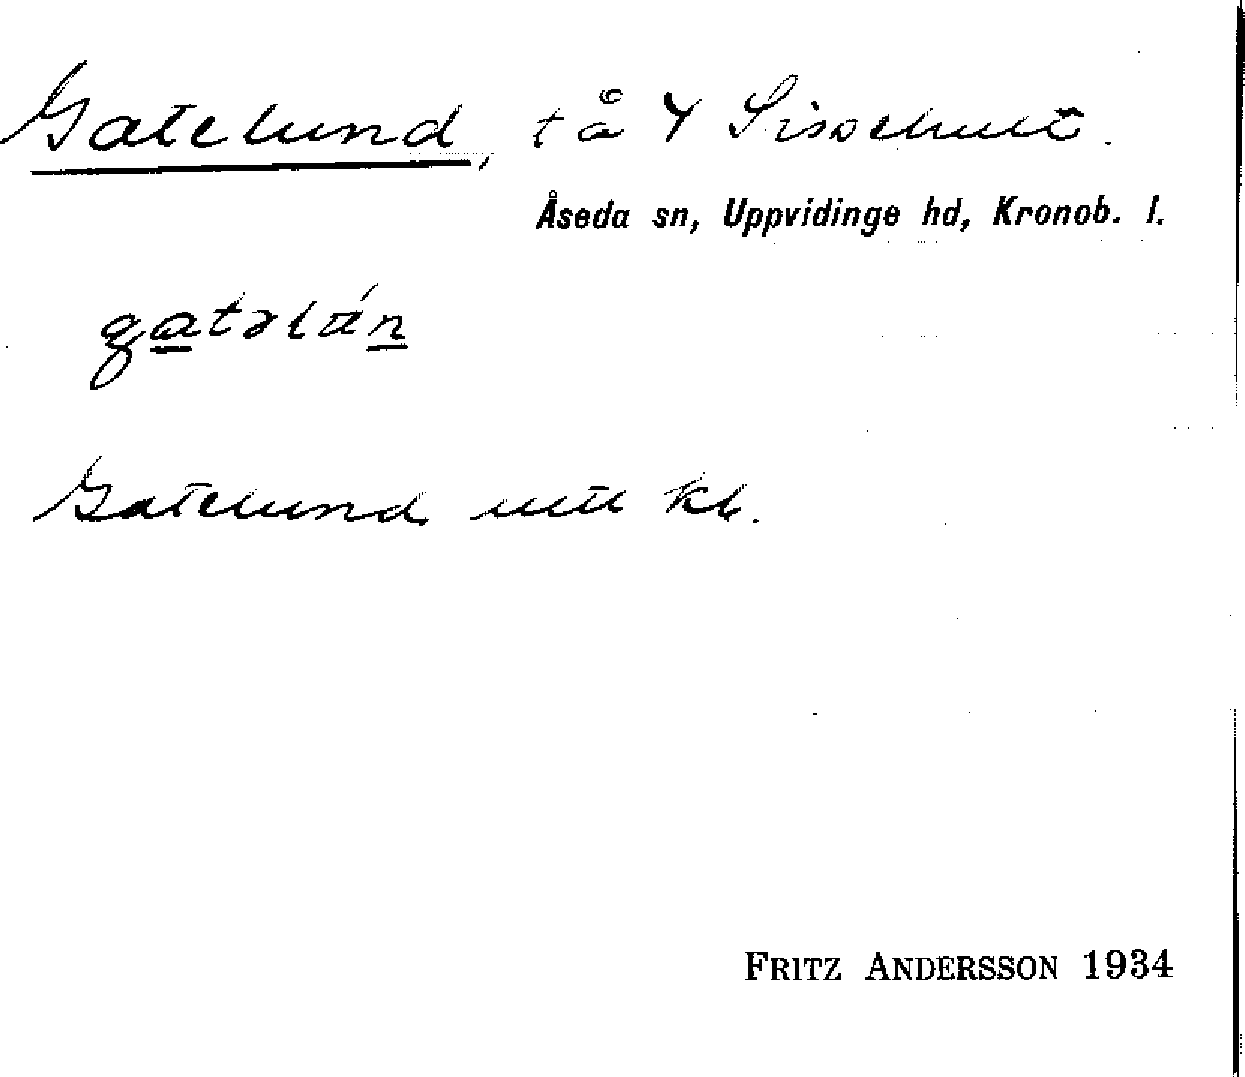 Gatelund, t å Y Sissehult.
Åseda sn, Uppvidinge hd, Kronob. l.
gatəlún
Gatelund uttl kb.
FRITZ ANDERSSON 1934